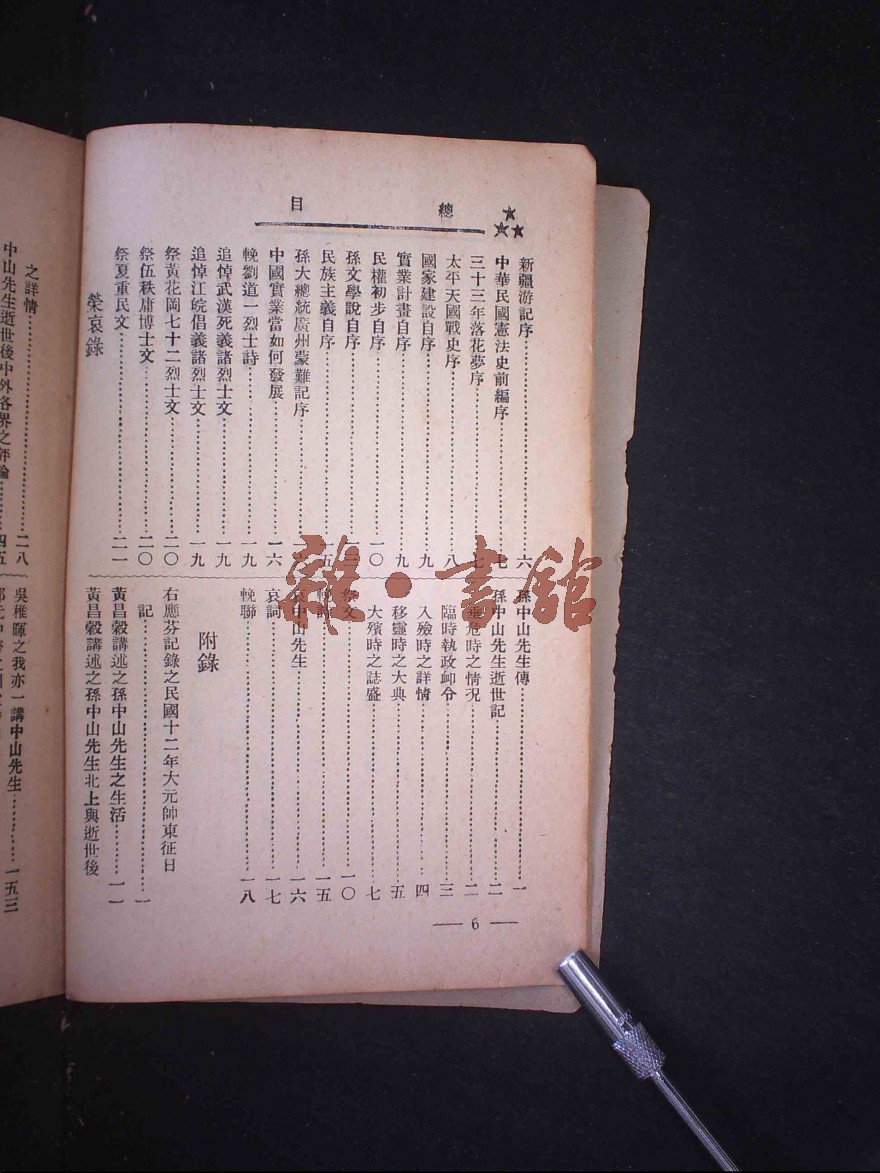 總目
新疆游記序……六
中華民國憲法史前編序……七
三十三年落花夢序……七
太平天國戰史序……八
國家建設自序……九
實業計畫自序……九
民權初步自序……一〇
孫文學說自序……
民族主義自序……一五
孫大總統廣州蒙難記序……
中國實業當如何發展……一六
輓劉道一烈士詩……一九
追悼武漢死義諸烈士文……一九
追悼江皖倡義諸烈士文……一九
祭黃花岡七十二烈士文……二〇
祭伍秩庸博士文……二〇
祭夏重民文……二一
榮哀錄
孫中山先生傳……一
孫中山先生逝世記……二
垂危時之情況……二
臨時執政卹令……三
入殮時之詳情……四
移靈時之大典……五
大殯時之誌盛……七
祭文……一〇
輓詩……一五
哀中山先生……一六
哀詞……一七
輓聯……一八
附錄
右應芬記錄之民國十二年大元帥東征日
記……一
黃昌穀講述之孫中山先生之生活……一一
黃昌穀講述之孫中山先生北上與逝世後
— 6 —
之詳情……二八
中山先生逝世後中外各界之評論……四五
吳稚暉之我亦一講中山先生……一五三
雜·書館